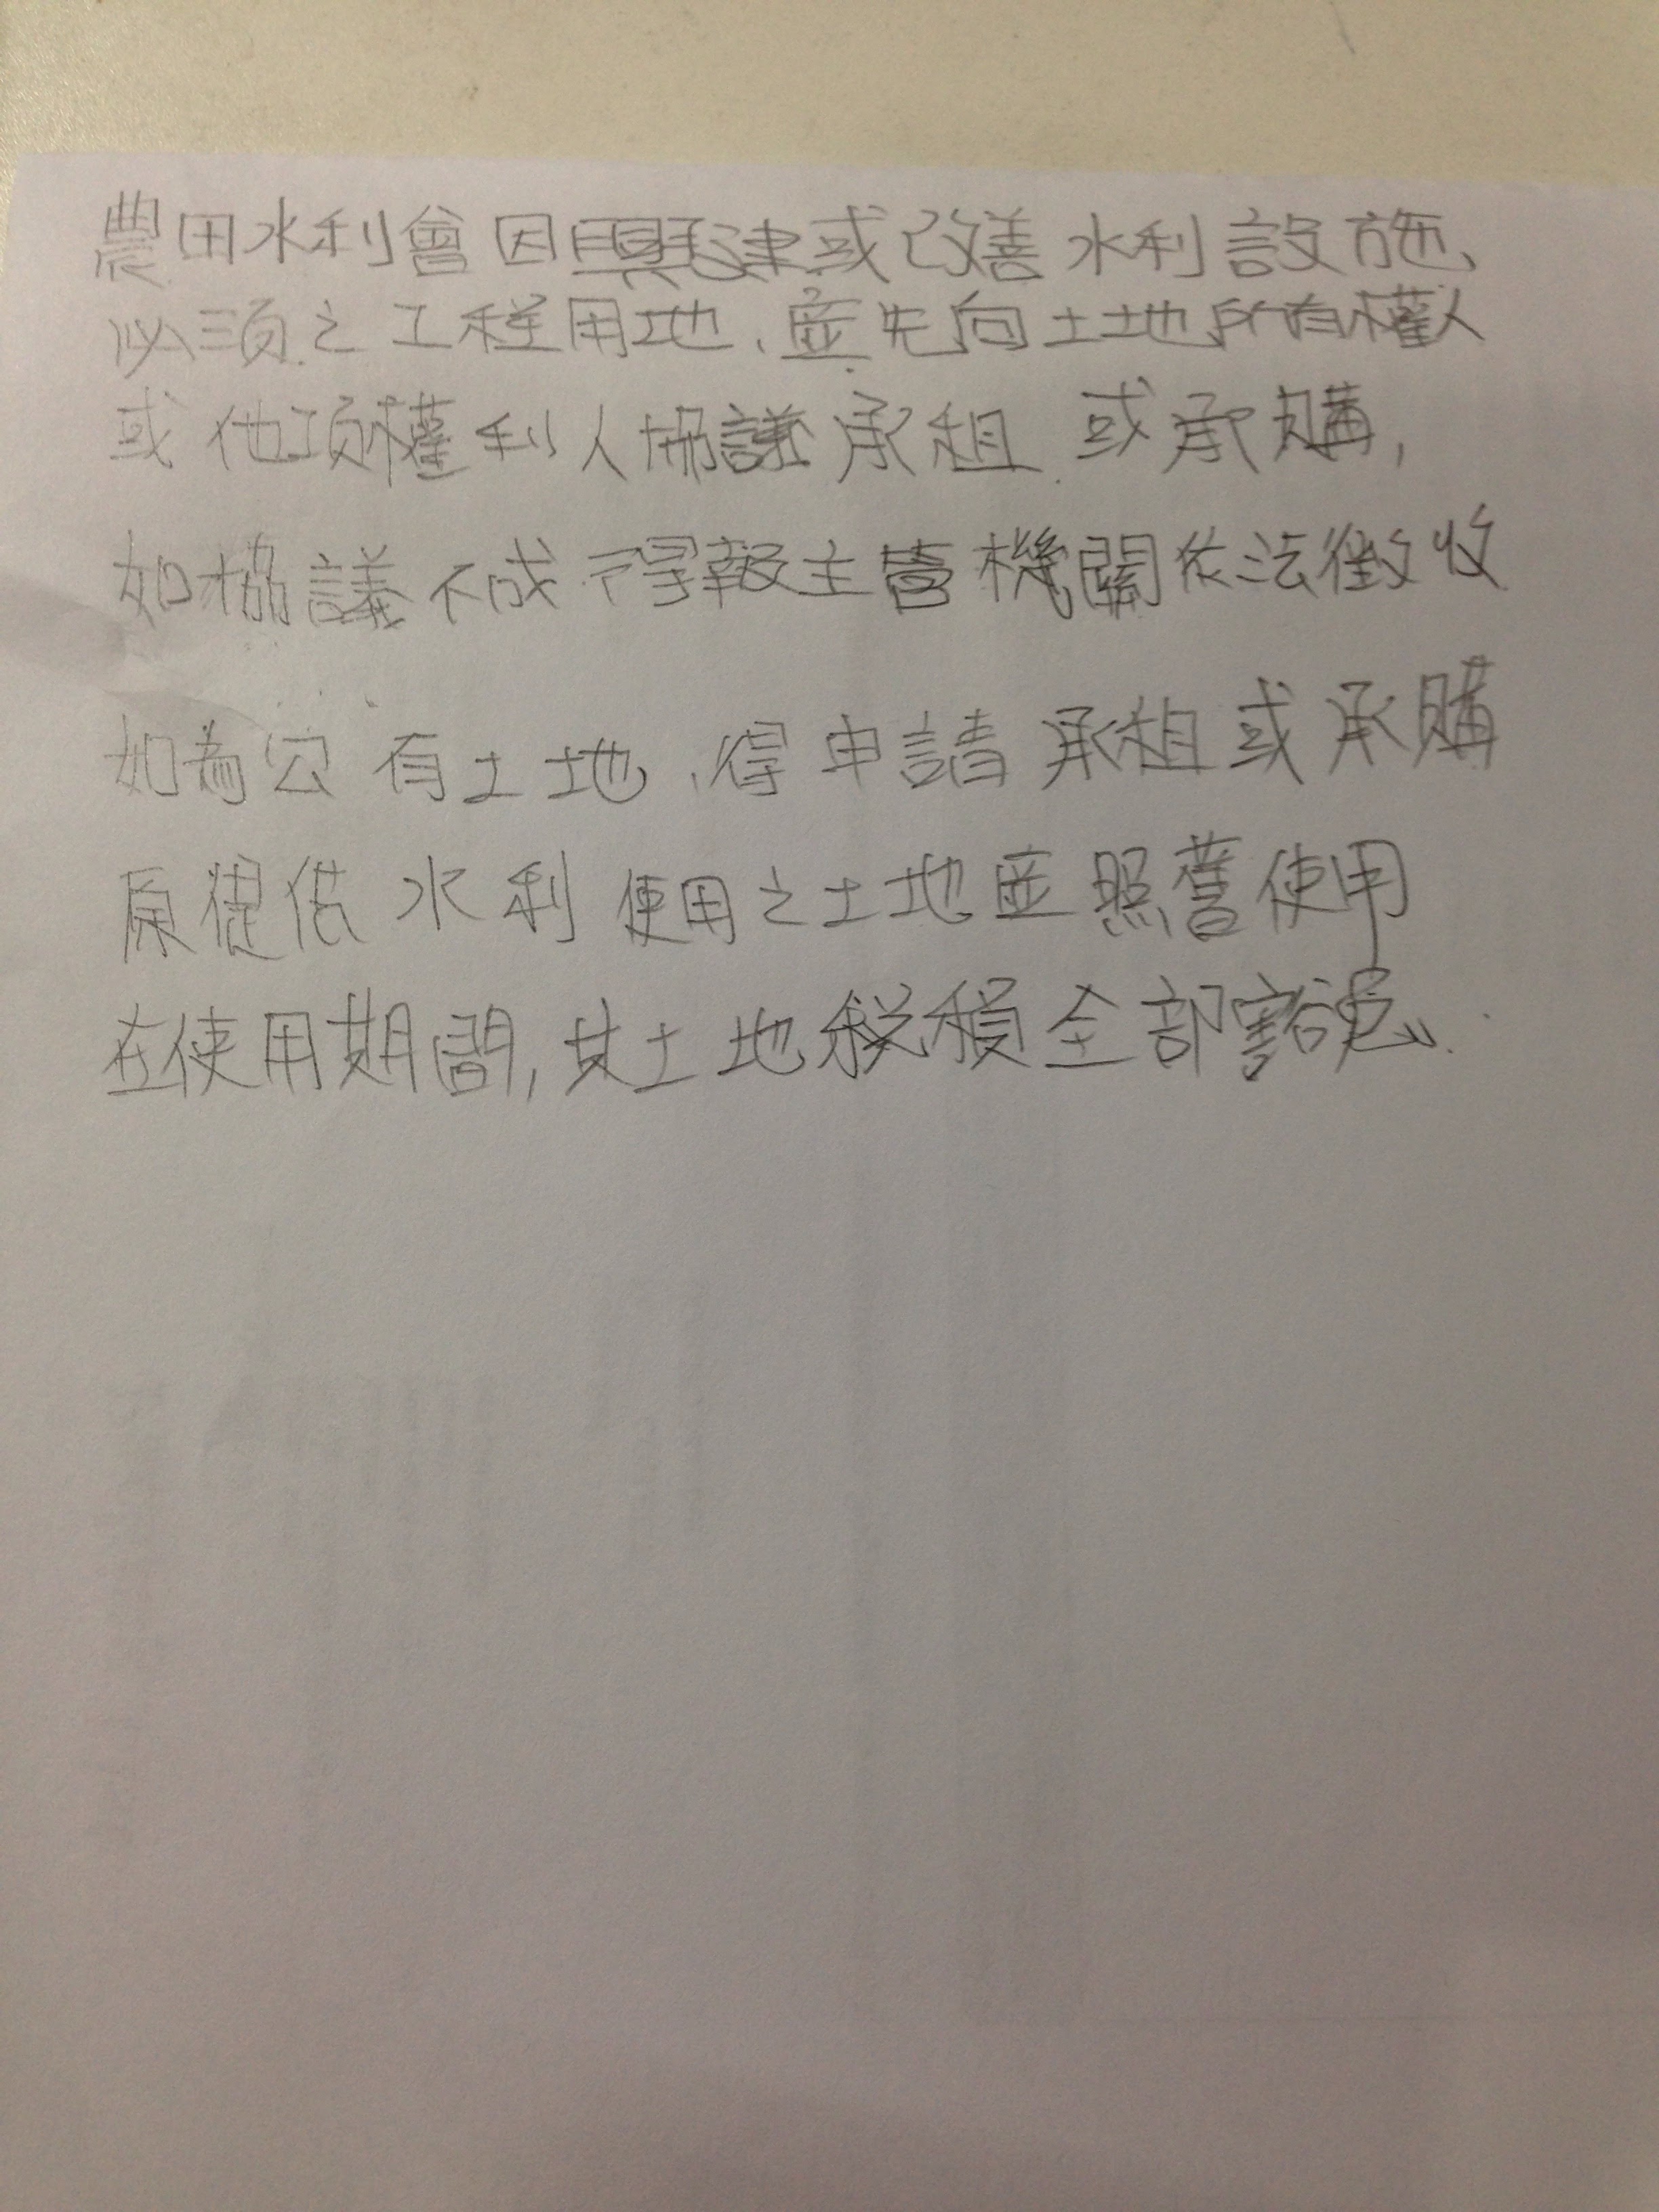 農田水利會因興建或改善水利設施、
必須之工程用地、並先向土地所有權人
或他項權利人協議承租、或承購，
如協議不成得報主管機關依法徵收
如為公有土地、得申請承租或承購
原提供水利使用之土地並照舊使用
在使用期間，其土地稅積全部豁免、